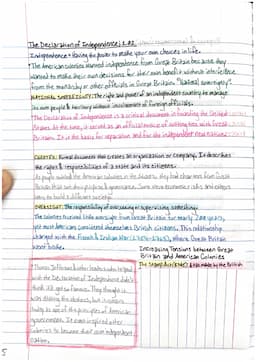 The Declaration of Independence 1.02
Independence - Having the power to make your own choices in life.
The American colonies wanted independence from Great Britain because they
wanted to make their own decisions for their own benefit without interference
from the monarchy or other officials in Great Britain.
NATIONAL SOVEREIGNTY: The right and power of an independent country to manage
its own people & territory without involvement of foreign officials.
The Declaration of Independence is a critical document in founding the United
States. At the time, it served as an official notice of cutting ties with Great
Britain. It is the basis for separation and for the independent new nation.
CHARTER: Formal document that creates an organization or company. It describes
the rights & responsibilities of a state and its citizens.
As people settled the American colonies in the they had charters from Great
Britain that and governance. Some were economic and others
to build a different society.
OVERSIGHT: The responsibility of overseeing or supervising something.
The colonies received little oversight from Great Britain for nearly years,
yet most Americans considered themselves British citizens. This relationship
changed with the French & Indian War (1754-1763), where Great Britain
went broke.
Increasing Tensions between Great
Britain and American Colonies
The Stamp Act made by the British
Thomas Jefferson & other leaders who helped
with the Declaration of Independence didn't
think it'd get so famous. They thought it
was stating the obvious, but it is seen
today as one of the principles of American
government. It even inspired other
colonies to become their own independent
nation.
5